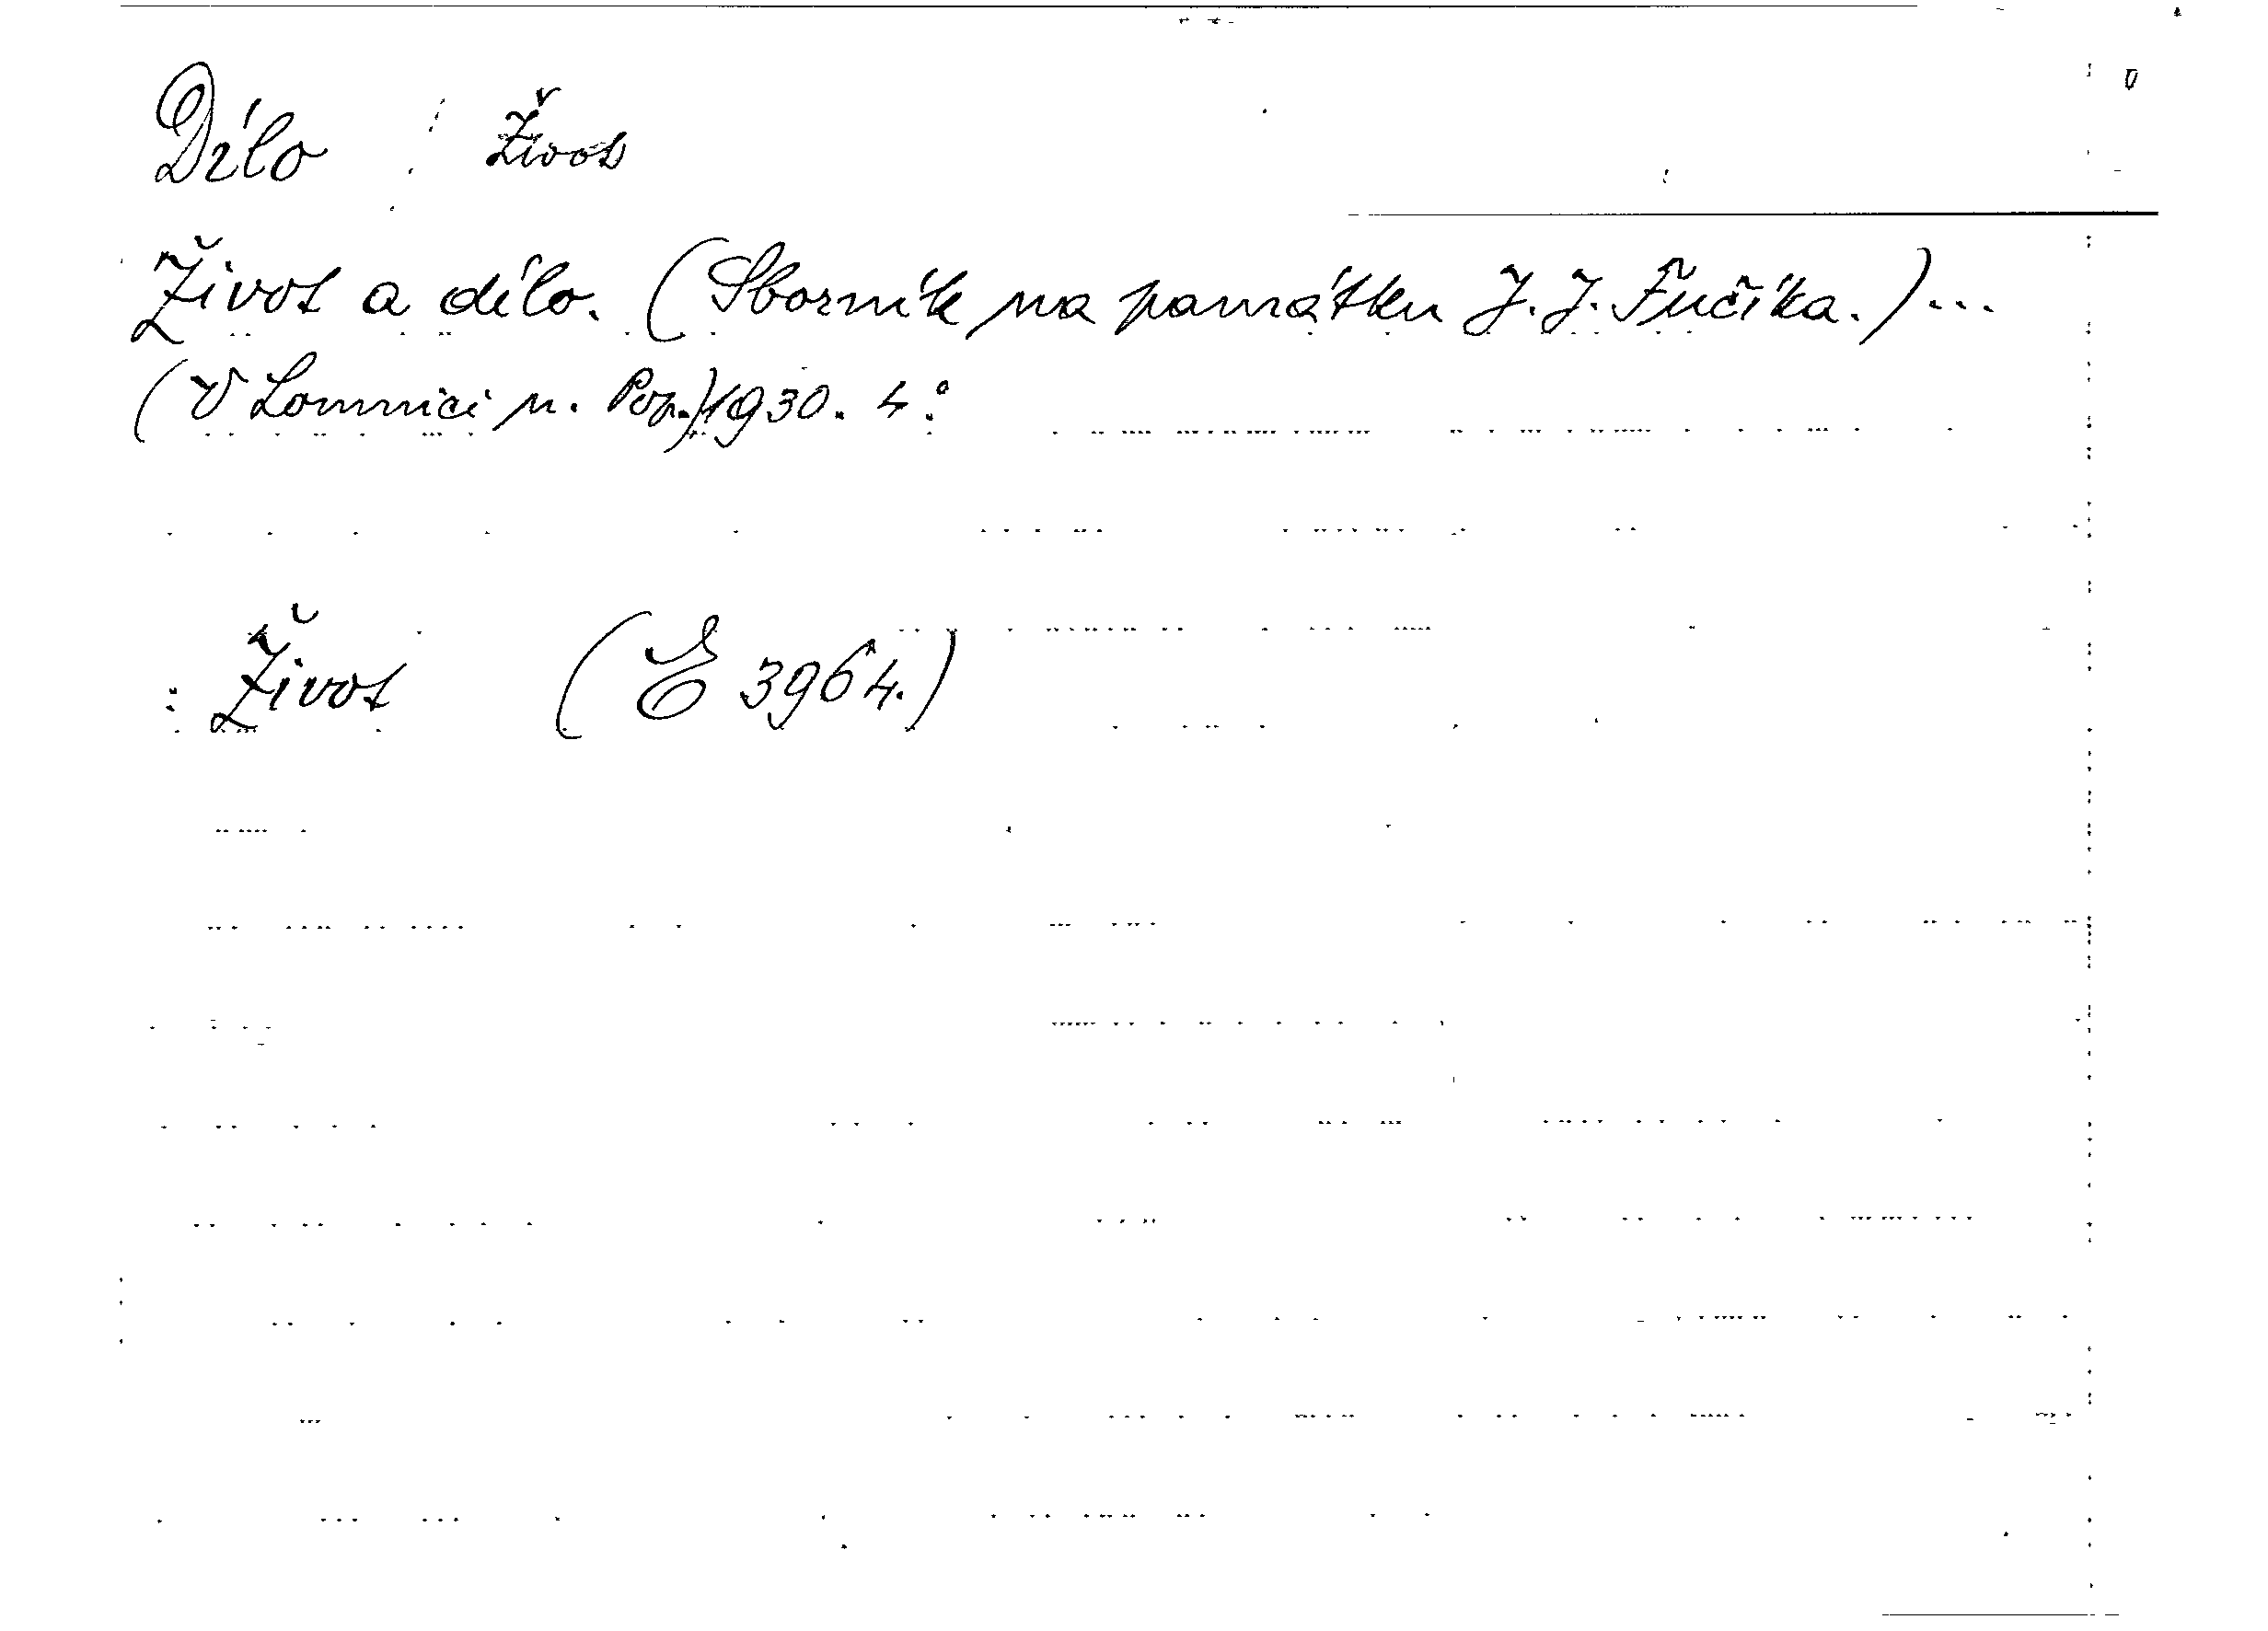 Dílo Život
Život a dílo. (Sborník na památku J. J. Fučíka.)...
(V Lomnici n. Pop.) 1930. 4°.
: Život (E 3964.)